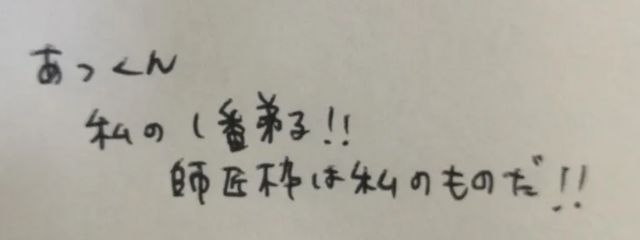 あっくん
私の1番弟る!!
師匠枠は私のものだ!!